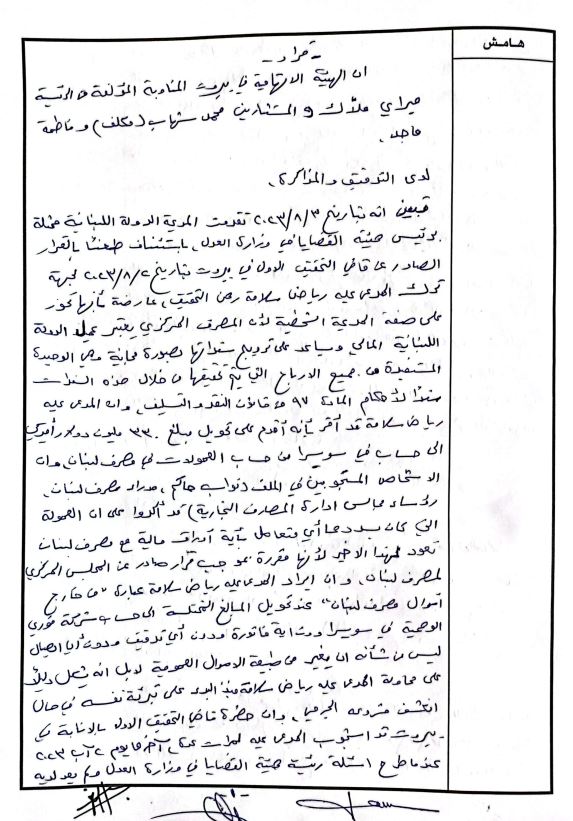 هامش
- قرار -
ان الهيئة الاتهامية في بيروت المناوبة المؤلفة من الرئيسة
ميراي ملاك و المستشارين محمد شهاب (مكلف) و فاطمة
ماجد،
لدى التدقيق والمذاكرة،
فتبين انه بتاريخ ٢٠٢٣/٨/٣ تقدمت المدعية الدولة اللبنانية ممثلة
برئيس هيئة القضايا في وزارة العدل، باستئناف طعناً بالقرار
الصادر عن قاضي التحقيق الاول في بيروت بتاريخ ٢٠٢٣/٨/٢ لجهة
ترك المدعى عليه رياض سلامة رهن التحقيق، عارضة بأنها تحوز
على صفة المدعية الشخصية لأن المصرف المركزي يعتبر عميل الدولة
اللبنانية المالي ويساعد على ترويج سنداتها بصورة مجانية وهي الوحيدة
المستفيدة من جميع الارباح التي يتم تحقيقها من خلال هذه السندات
سنداً لأحكام المادة ٩٧ من قانون النقد والتسليف، وان المدعى عليه
رياض سلامة قد أقر بأنه أقدم على تحويل مبلغ ٣٣٠ مليون دولار أميركي
الى حساب في سويسرا من حساب العمولات في مصرف لبنان، وان
الاشخاص المستجوبين في الملف (نواب حاكم، مدراء مصرف لبنان،
رؤساء مجالس ادارة المصارف التجارية) قد أكدوا على ان العمولة
التي كان يسددها أي متعامل بأية أوراق مالية مع مصرف لبنان
تعود لهذا الاخير لأنها مقررة بموجب قرار صادر عن المجلس المركزي
لمصرف لبنان، وان ايراد المدعى عليه رياض سلامة عبارة "من خارج
اموال مصرف لبنان" عند تحويل المبالغ المختلسة الى حساب شركة فوري
الوهمية في سويسرا دون اية فاتورة ودون أي تدقيق ودون أي ايصال
ليس من شأنه ان يغير من طبيعة الاموال العمومية لا بل انه يشكل دليلاً
على محاولة المدعى عليه رياض سلامة منذ البدء على تبرئة نفسه في حال
انكشف مشروعه الجرمي، وان حضرة قاضي التحقيق الاول بالانابة في
بيروت قد استجوب المدعى عليه لمرات عدة، آخرها يوم ٢ آب ٢٠٢٣
عندما طرح اسئلة رئيسة هيئة القضايا في وزارة العدل ولم يعد لديه